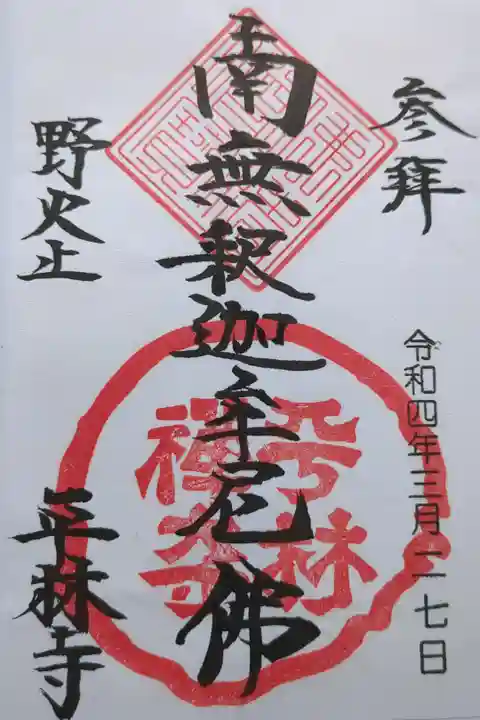 参拜
令和四年三月二七日
南無釈迦牟尼佛
平林
禅寺
野火止
平林寺